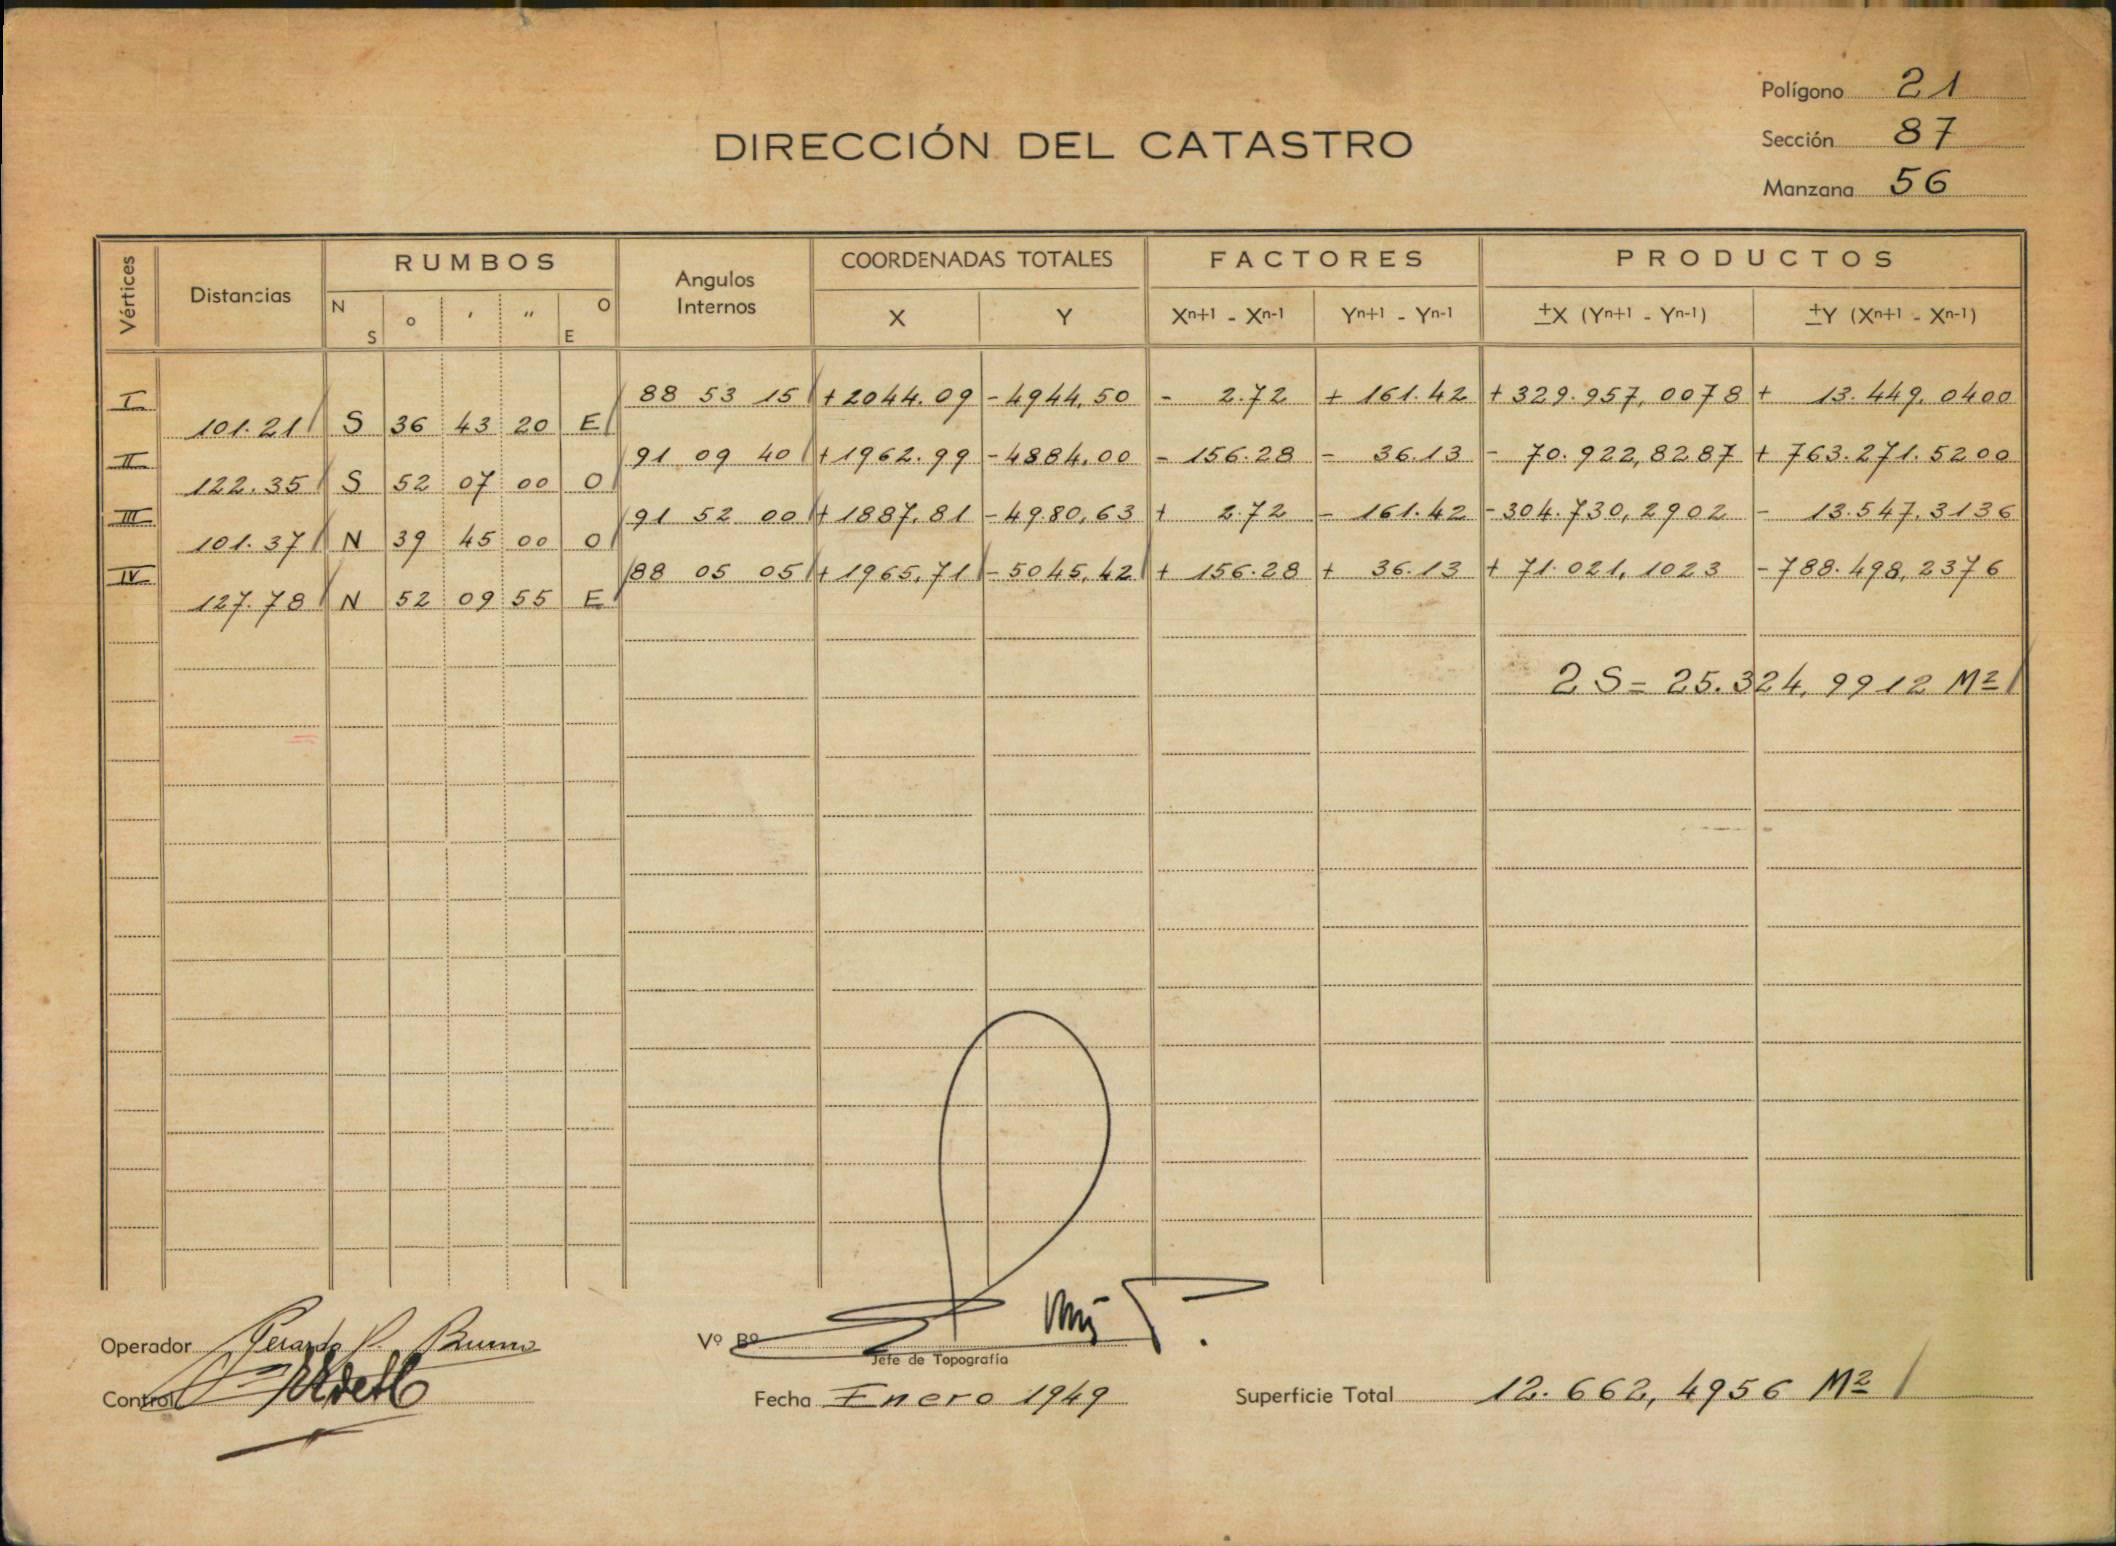 Polígono 21
DIRECCIÓN DEL CATASTRO
Sección 87
Manzana 56
Vértices Distancias RUMBOS Angulos Internos COORDENADAS TOTALES FACTORES PRODUCTOS
N S o ' " O E X Y Xn+1 - Xn-1 Yn+1 - Yn-1 ±X (Yn+1 - Yn-1) ±Y (Xn+1 - Xn-1)
I 88 53 15 +2044.09 -4944,50 - 2.72 + 161.42 +329.957,0078 + 13.449,0400
101.21 S 36 43 20 E
II 91 09 40 +1962.99 -4884,00 - 156.28 - 36.13 - 70.922,8287 + 763.271.5200
122.35 S 52 07 00 O
III 91 52 00 +1887,81 -4980,63 + 2.72 - 161.42 -304.730,2902 - 13.547,3136
101.37 N 39 45 00 O
IV 88 05 05 +1965,71 -5045,42 + 156.28 + 36.13 + 71.021,1023 -788.498,2376
127.78 N 52 09 55 E
2 S = 25.324,9912 M2
Operador Gerardo P. Bueno
Vº Bº
Jefe de Topografía
Control
Fecha Enero 1949
Superficie Total 12.662,4956 M2